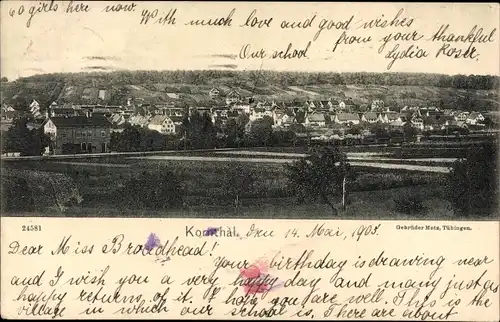 60 girls here now
With much love and good wishes
from your thankful
Our school
Lydia
24581
Korntal. den 14. Mai, 1905.
Gebrüder Metz, Tübingen.
Dear Miss Broadhead!
Your birthday is drawing near
and I wish you a very happy day and many just as
happy returns of it. I hope you are very well. This is the
village in which our school is. There are about